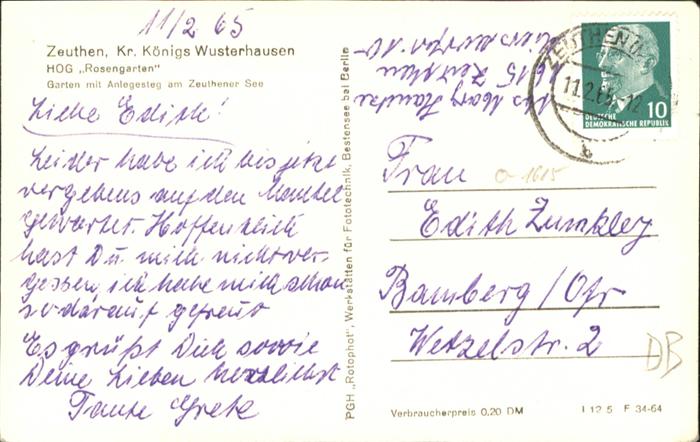 11/2 65
Zeuthen, Kr. Königs Wusterhausen
HOG „Rosengarten"
Garten mit Anlegesteg am Zeuthener See
Liebe Edith!
Leider habe ich bis jetzt
vergebens auf den Mantel
gewartet. Hoffentlich
hast Du mich nicht ver-
gessen, ich habe mich schon
so darauf gefreut
Es grüßt Dich sowie
Deine Lieben herzlichst
Tante Grete
PGH „Rotophot", Werkstätten für Fototechnik, Bestensee bei Berlin
1615 Zeuthen
ZEUTHEN
11.2.65
10
DEUTSCHE
DEMOKRATISCHE REPUBLIK
b
Frau
o-1615
Edith Zumkley
Bamberg/Ofr.
Wetzelstr. 2
DB
Verbraucherpreis 0,20 DM
I 12 5 F 34-64